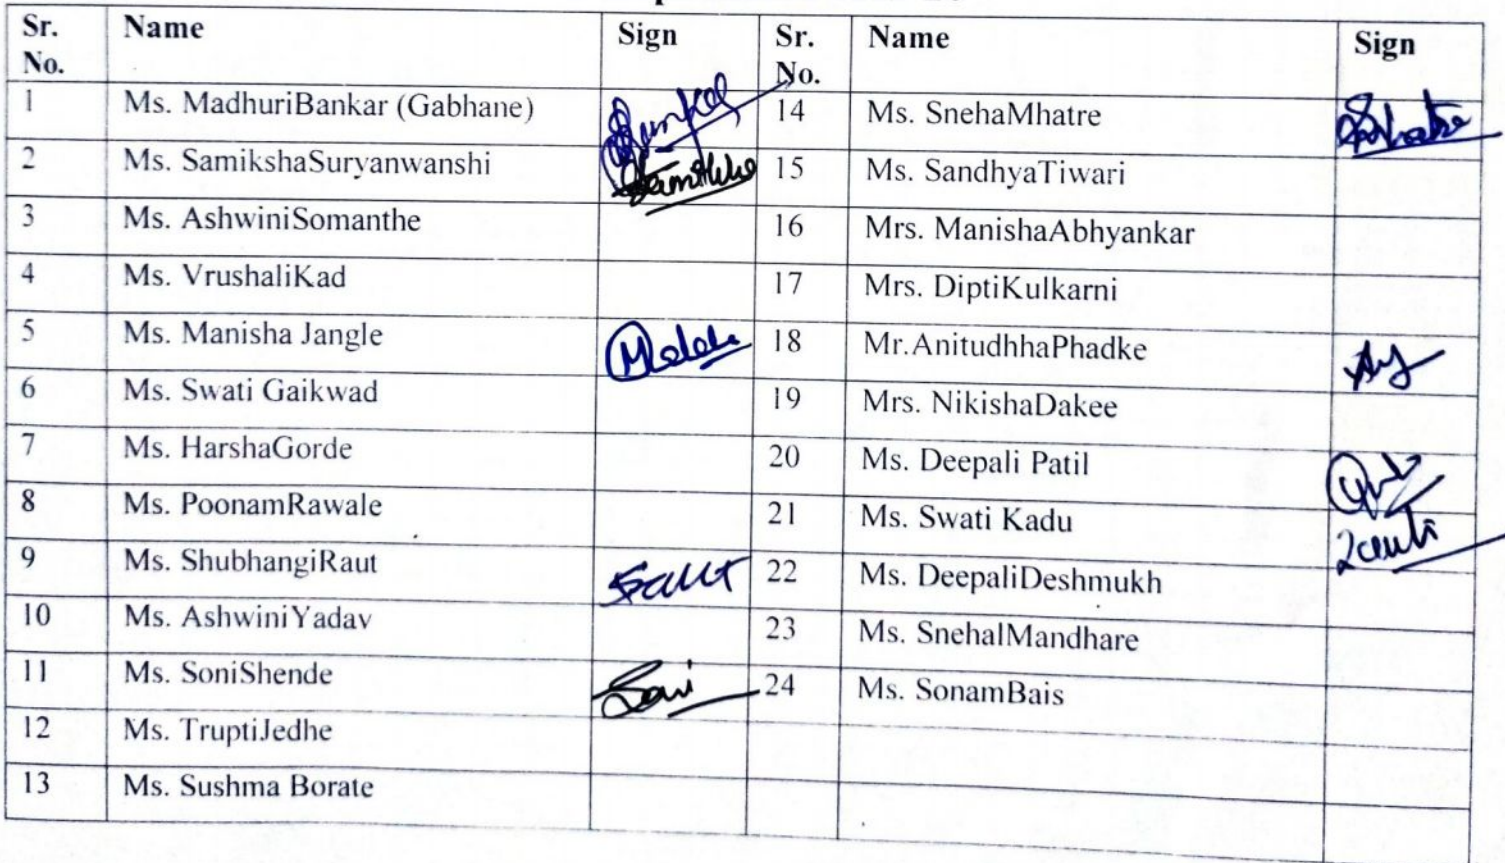 Sr. No. Name Sign Sr. No. Name Sign
1 Ms. MadhuriBankar (Gabhane) 14 Ms. SnehaMhatre
2 Ms. SamikshaSuryanwanshi 15 Ms. SandhyaTiwari
3 Ms. AshwiniSomanthe 16 Mrs. ManishaAbhyankar
4 Ms. VrushaliKad 17 Mrs. DiptiKulkarni
5 Ms. Manisha Jangle 18 Mr.AnitudhhaPhadke
6 Ms. Swati Gaikwad 19 Mrs. NikishaDakee
7 Ms. HarshaGorde 20 Ms. Deepali Patil
8 Ms. PoonamRawale 21 Ms. Swati Kadu
9 Ms. ShubhangiRaut 22 Ms. DeepaliDeshmukh
10 Ms. AshwiniYadav 23 Ms. SnehalMandhare
11 Ms. SoniShende Soni 24 Ms. SonamBais
12 Ms. TruptiJedhe
13 Ms. Sushma Borate